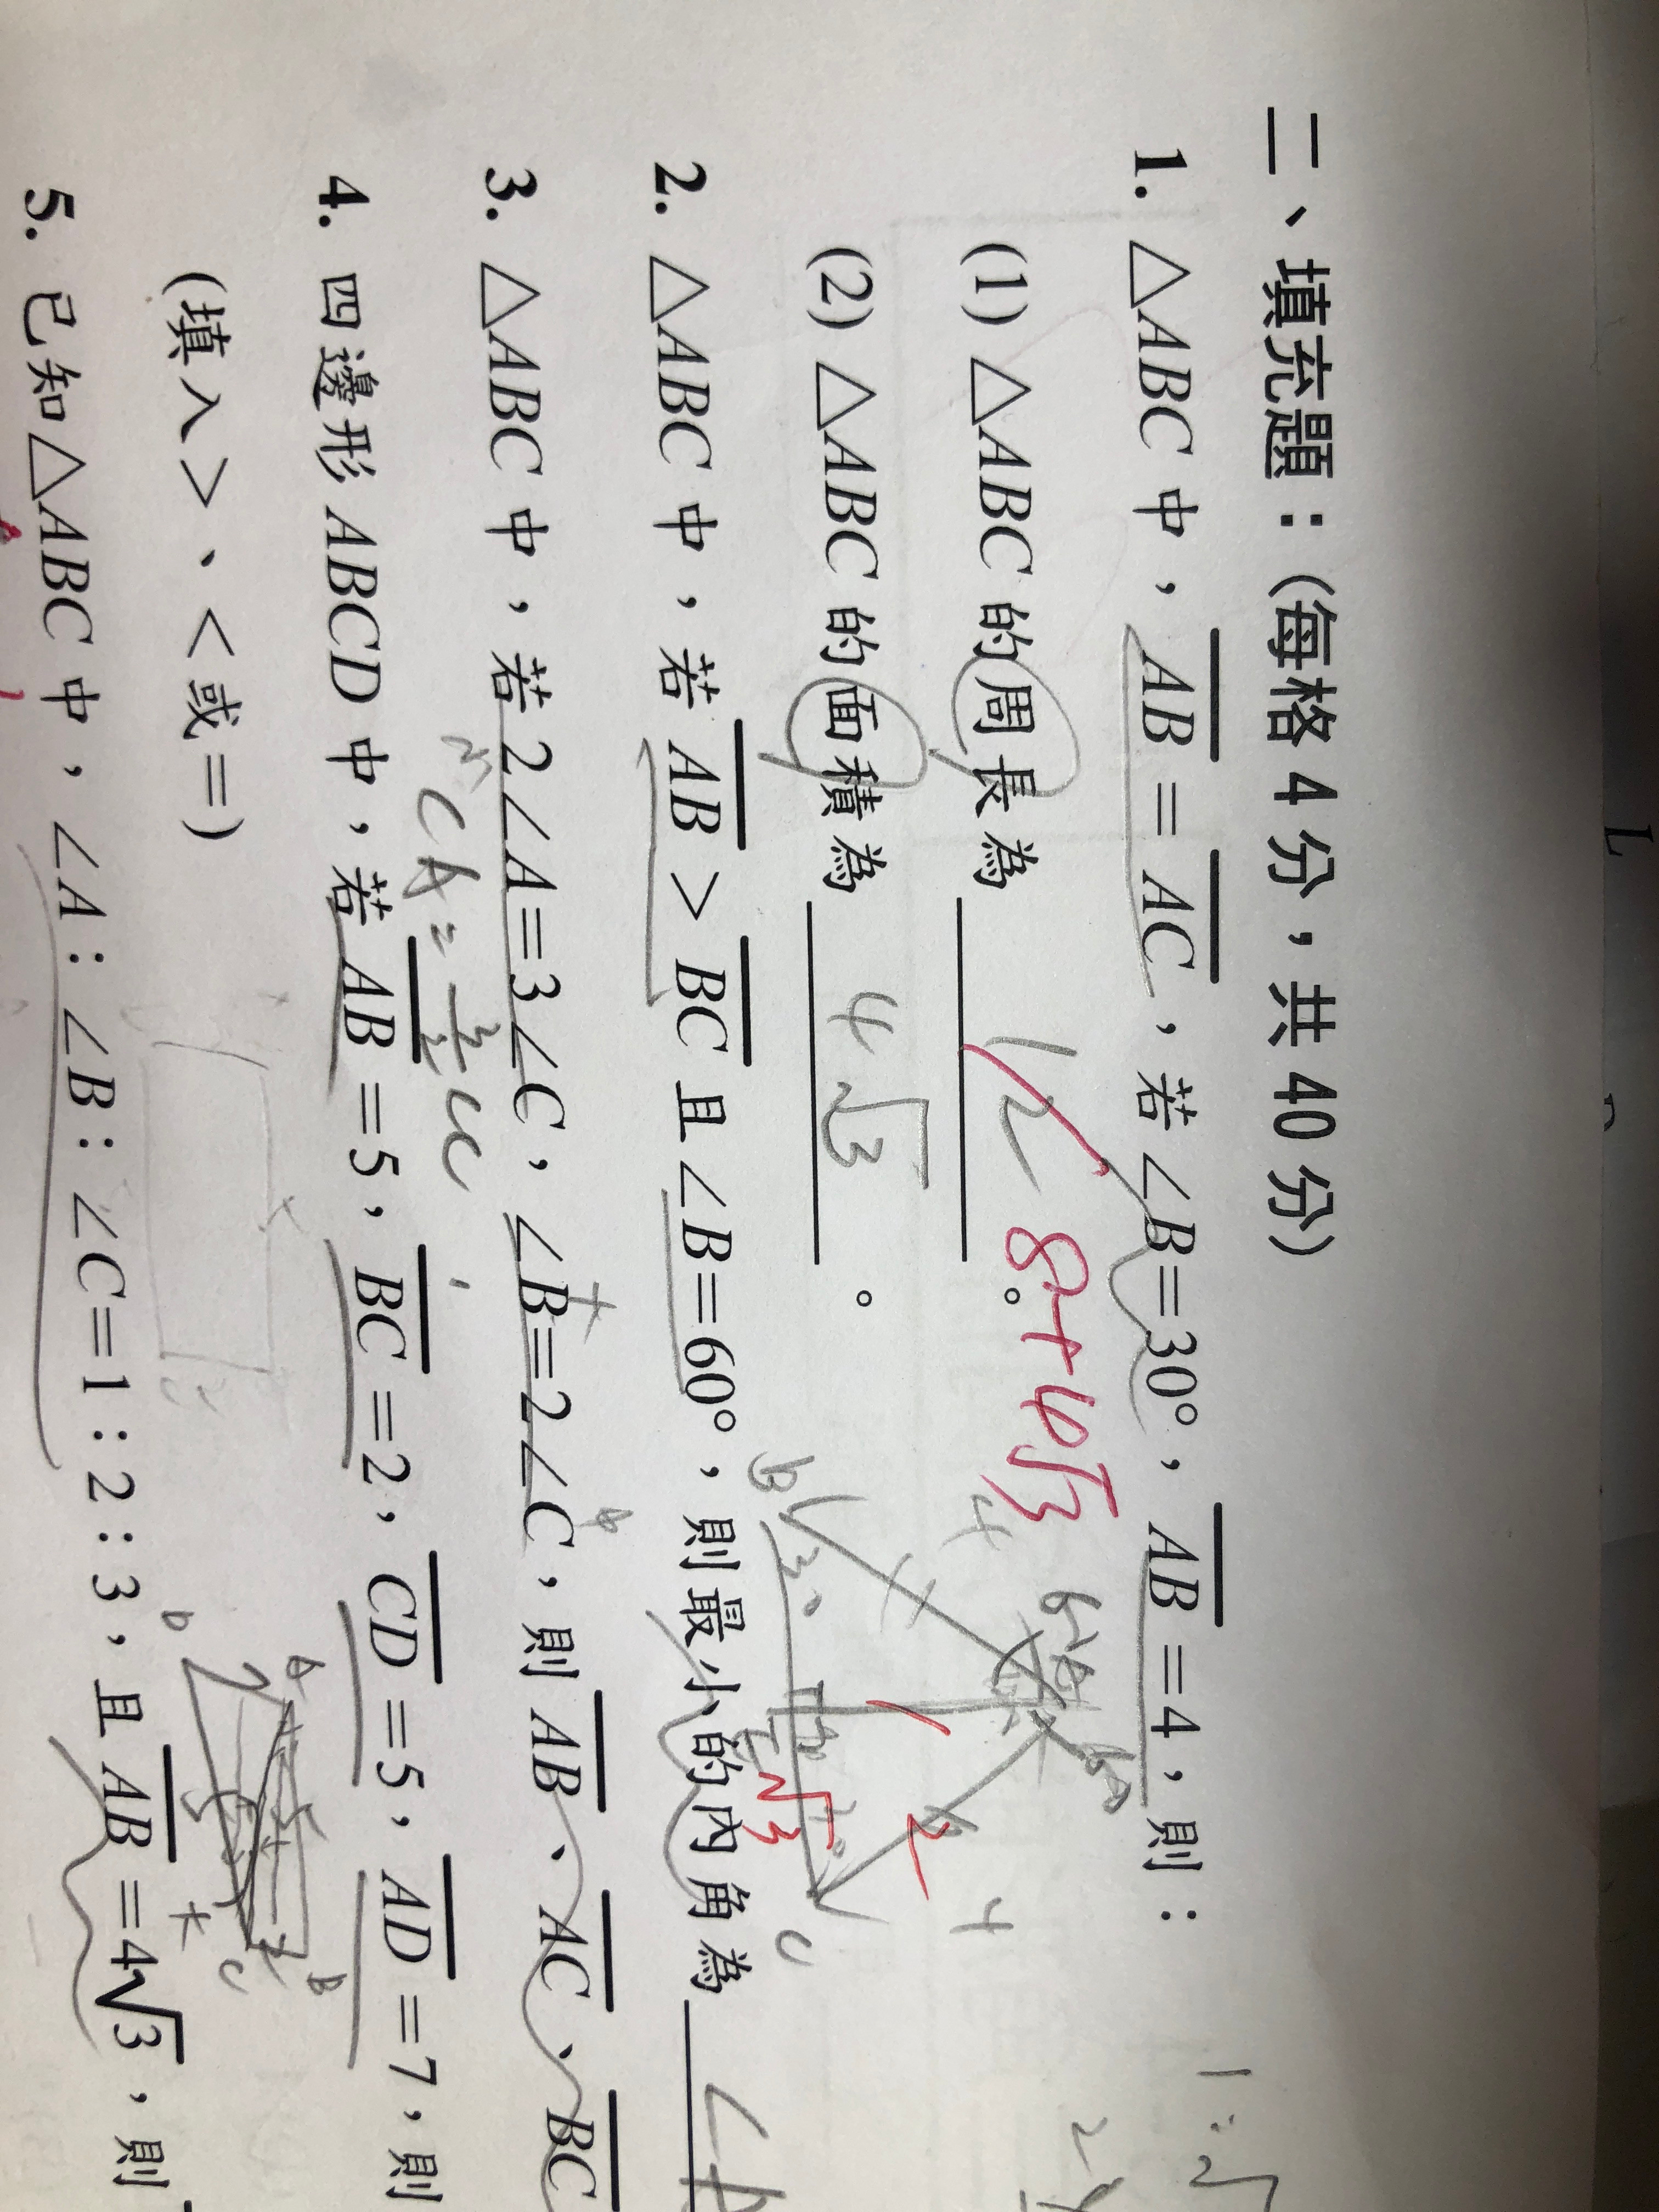 二、填充題：(每格 4 分，共 40 分)
1. △ABC 中，AB = AC，若 ∠B=30°，AB =4，則：
(1) △ABC 的周長為 12 。 8+4√3
(2) △ABC 的面積為 4√3 。
2. △ABC 中，若 AB > BC 且 ∠B=60°，則最小的內角為 ∠A
3. △ABC 中，若 2∠A=3∠C，∠B=2∠C，則 AB、AC、BC
4. 四邊形 ABCD 中，若 AB =5，BC =2，CD =5，AD =7，則
(填入＞、＜或＝)
5. 已知△ABC 中，∠A：∠B：∠C=1：2：3，且 AB =4√3，則